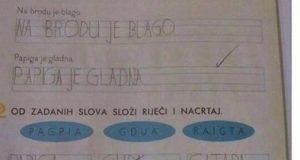 Na brodu je blago.
NA BRODU JE BLAGO
Papiga je gladna.
PAPIGA JE GLADNA
OD ZADANIH SLOVA SLOŽI RIJEČI I NACRTAJ.
PAGPIA GDUA RAIGTA